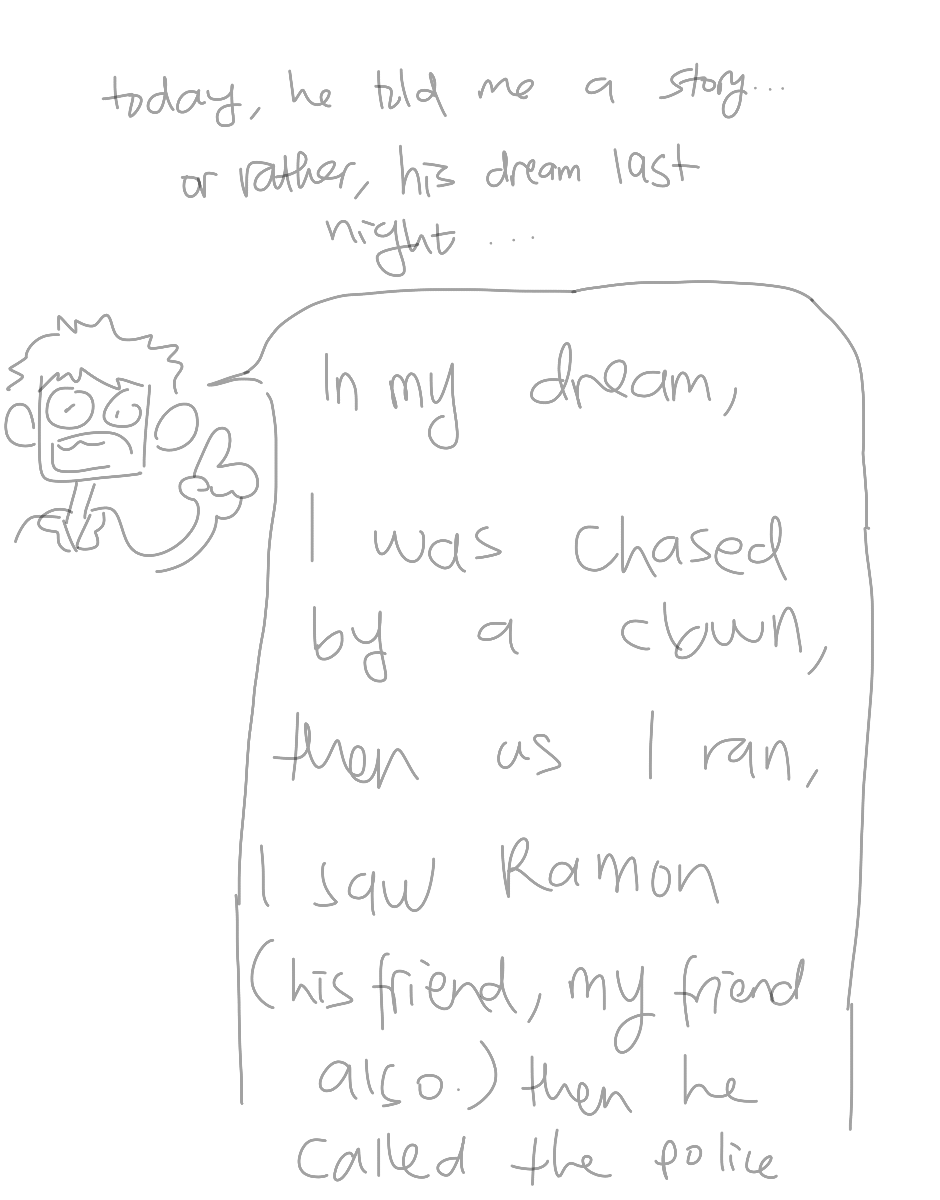 today, he told me a story...
or rather, his dream last
night ...
In my dream,
I was chased
by a clown,
then as I ran,
I saw Ramon
(his friend, my friend
also.) then he
called the police